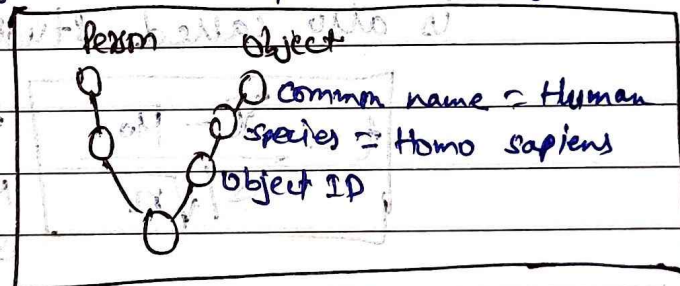 Person Object
Common name = Human
Species = Homo sapiens
Object ID